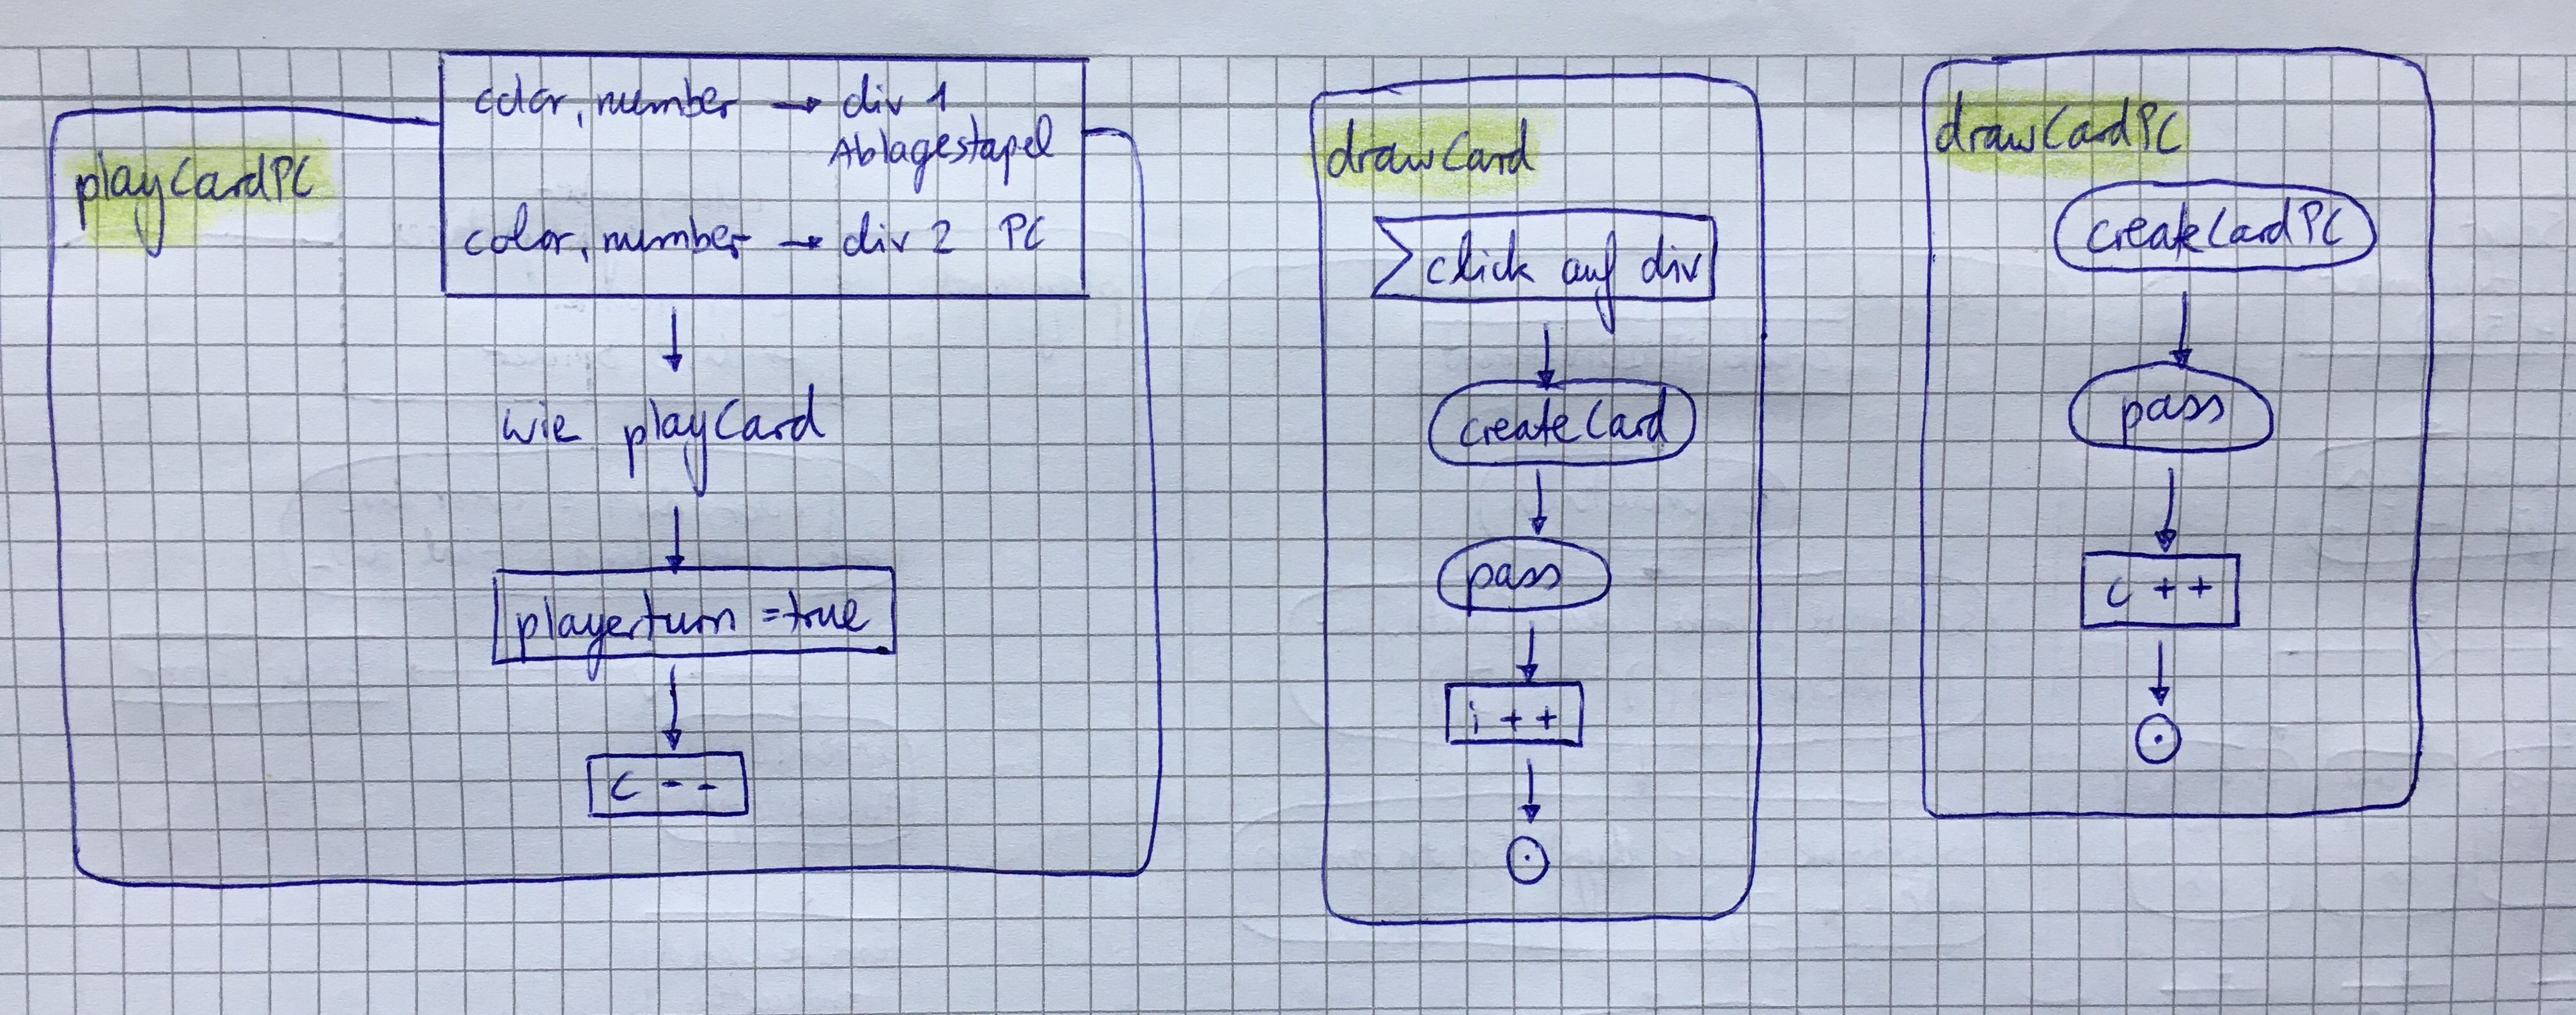 playCardPC
color, number → div 1
Ablagestapel
color, number → div 2 PC
wie playCard
playerturn = true
c - -
drawCard
click auf div
createCard
pass
i + +
drawCardPC
createCardPC
pass
c + +